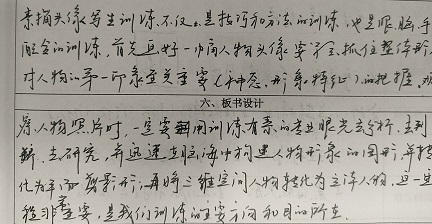 素描头像写生训练不仅是技巧和方法的训练,也是眼脑手
配合的训练,首先画好一巾 人物头像要 抓住整体
对人物的第一印象至关重要(神态、形象特征)的把握
六、板书设计
人物照片时,一定要用训练有素的专业眼光去分析、去
解、去研究,并迅速在脑海中构建人物形象的图形,并
化为平面剪影形,再将三维空间人物转化为立体人物,这一
非常重要,是我们训练的主要方向和目的所在。